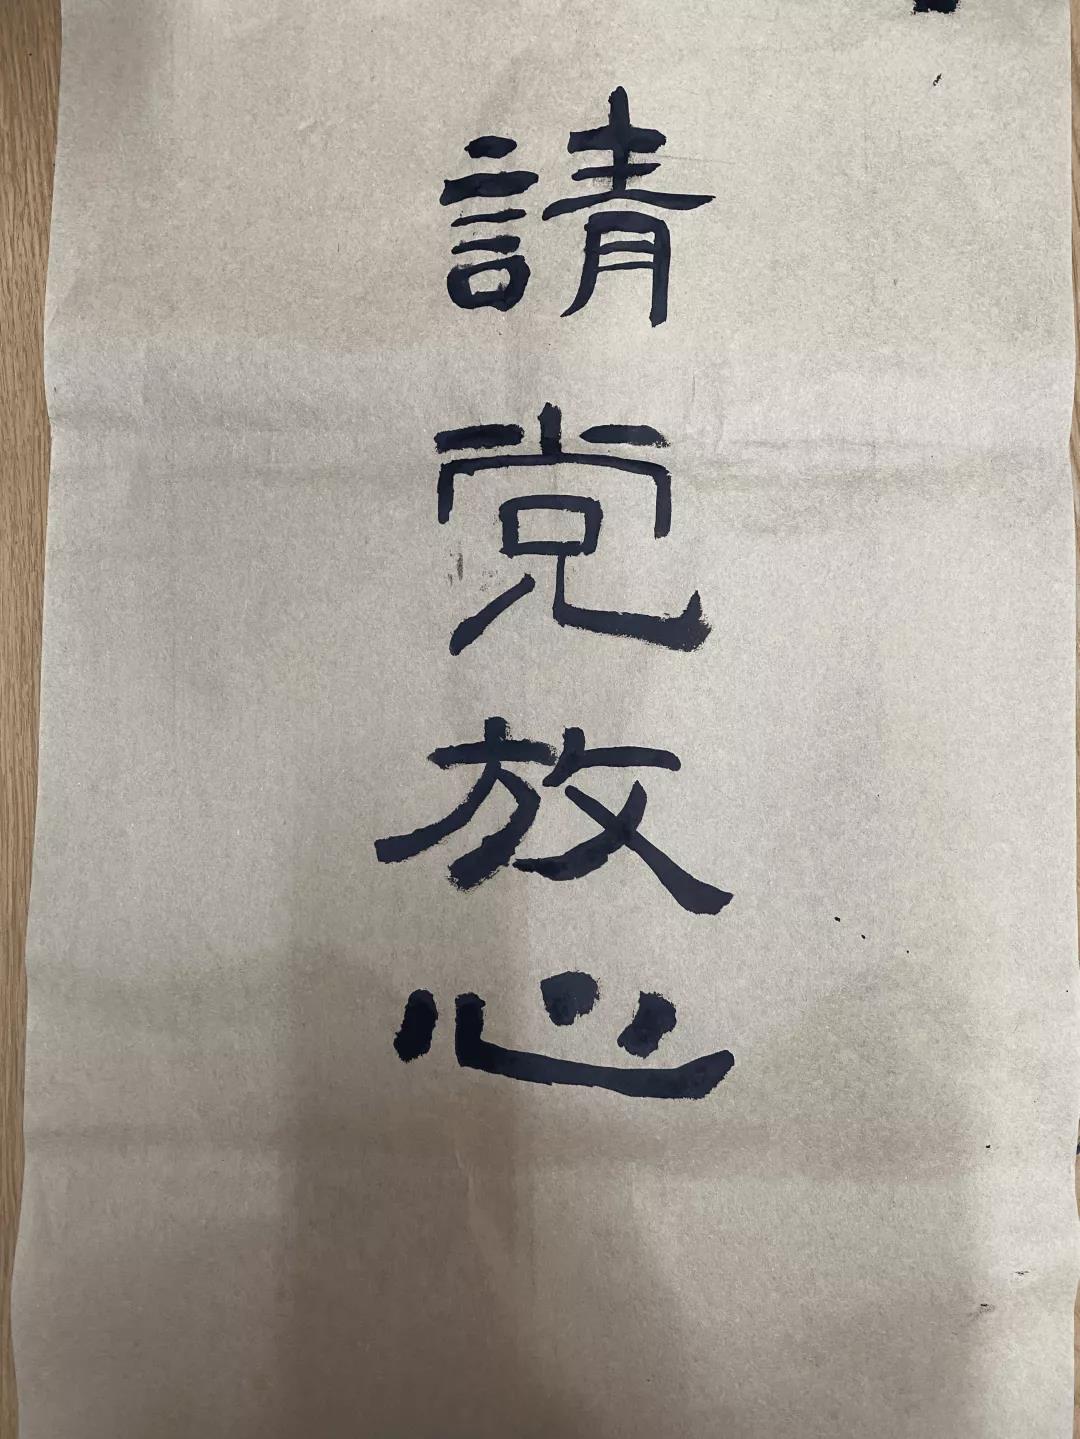 請党放心